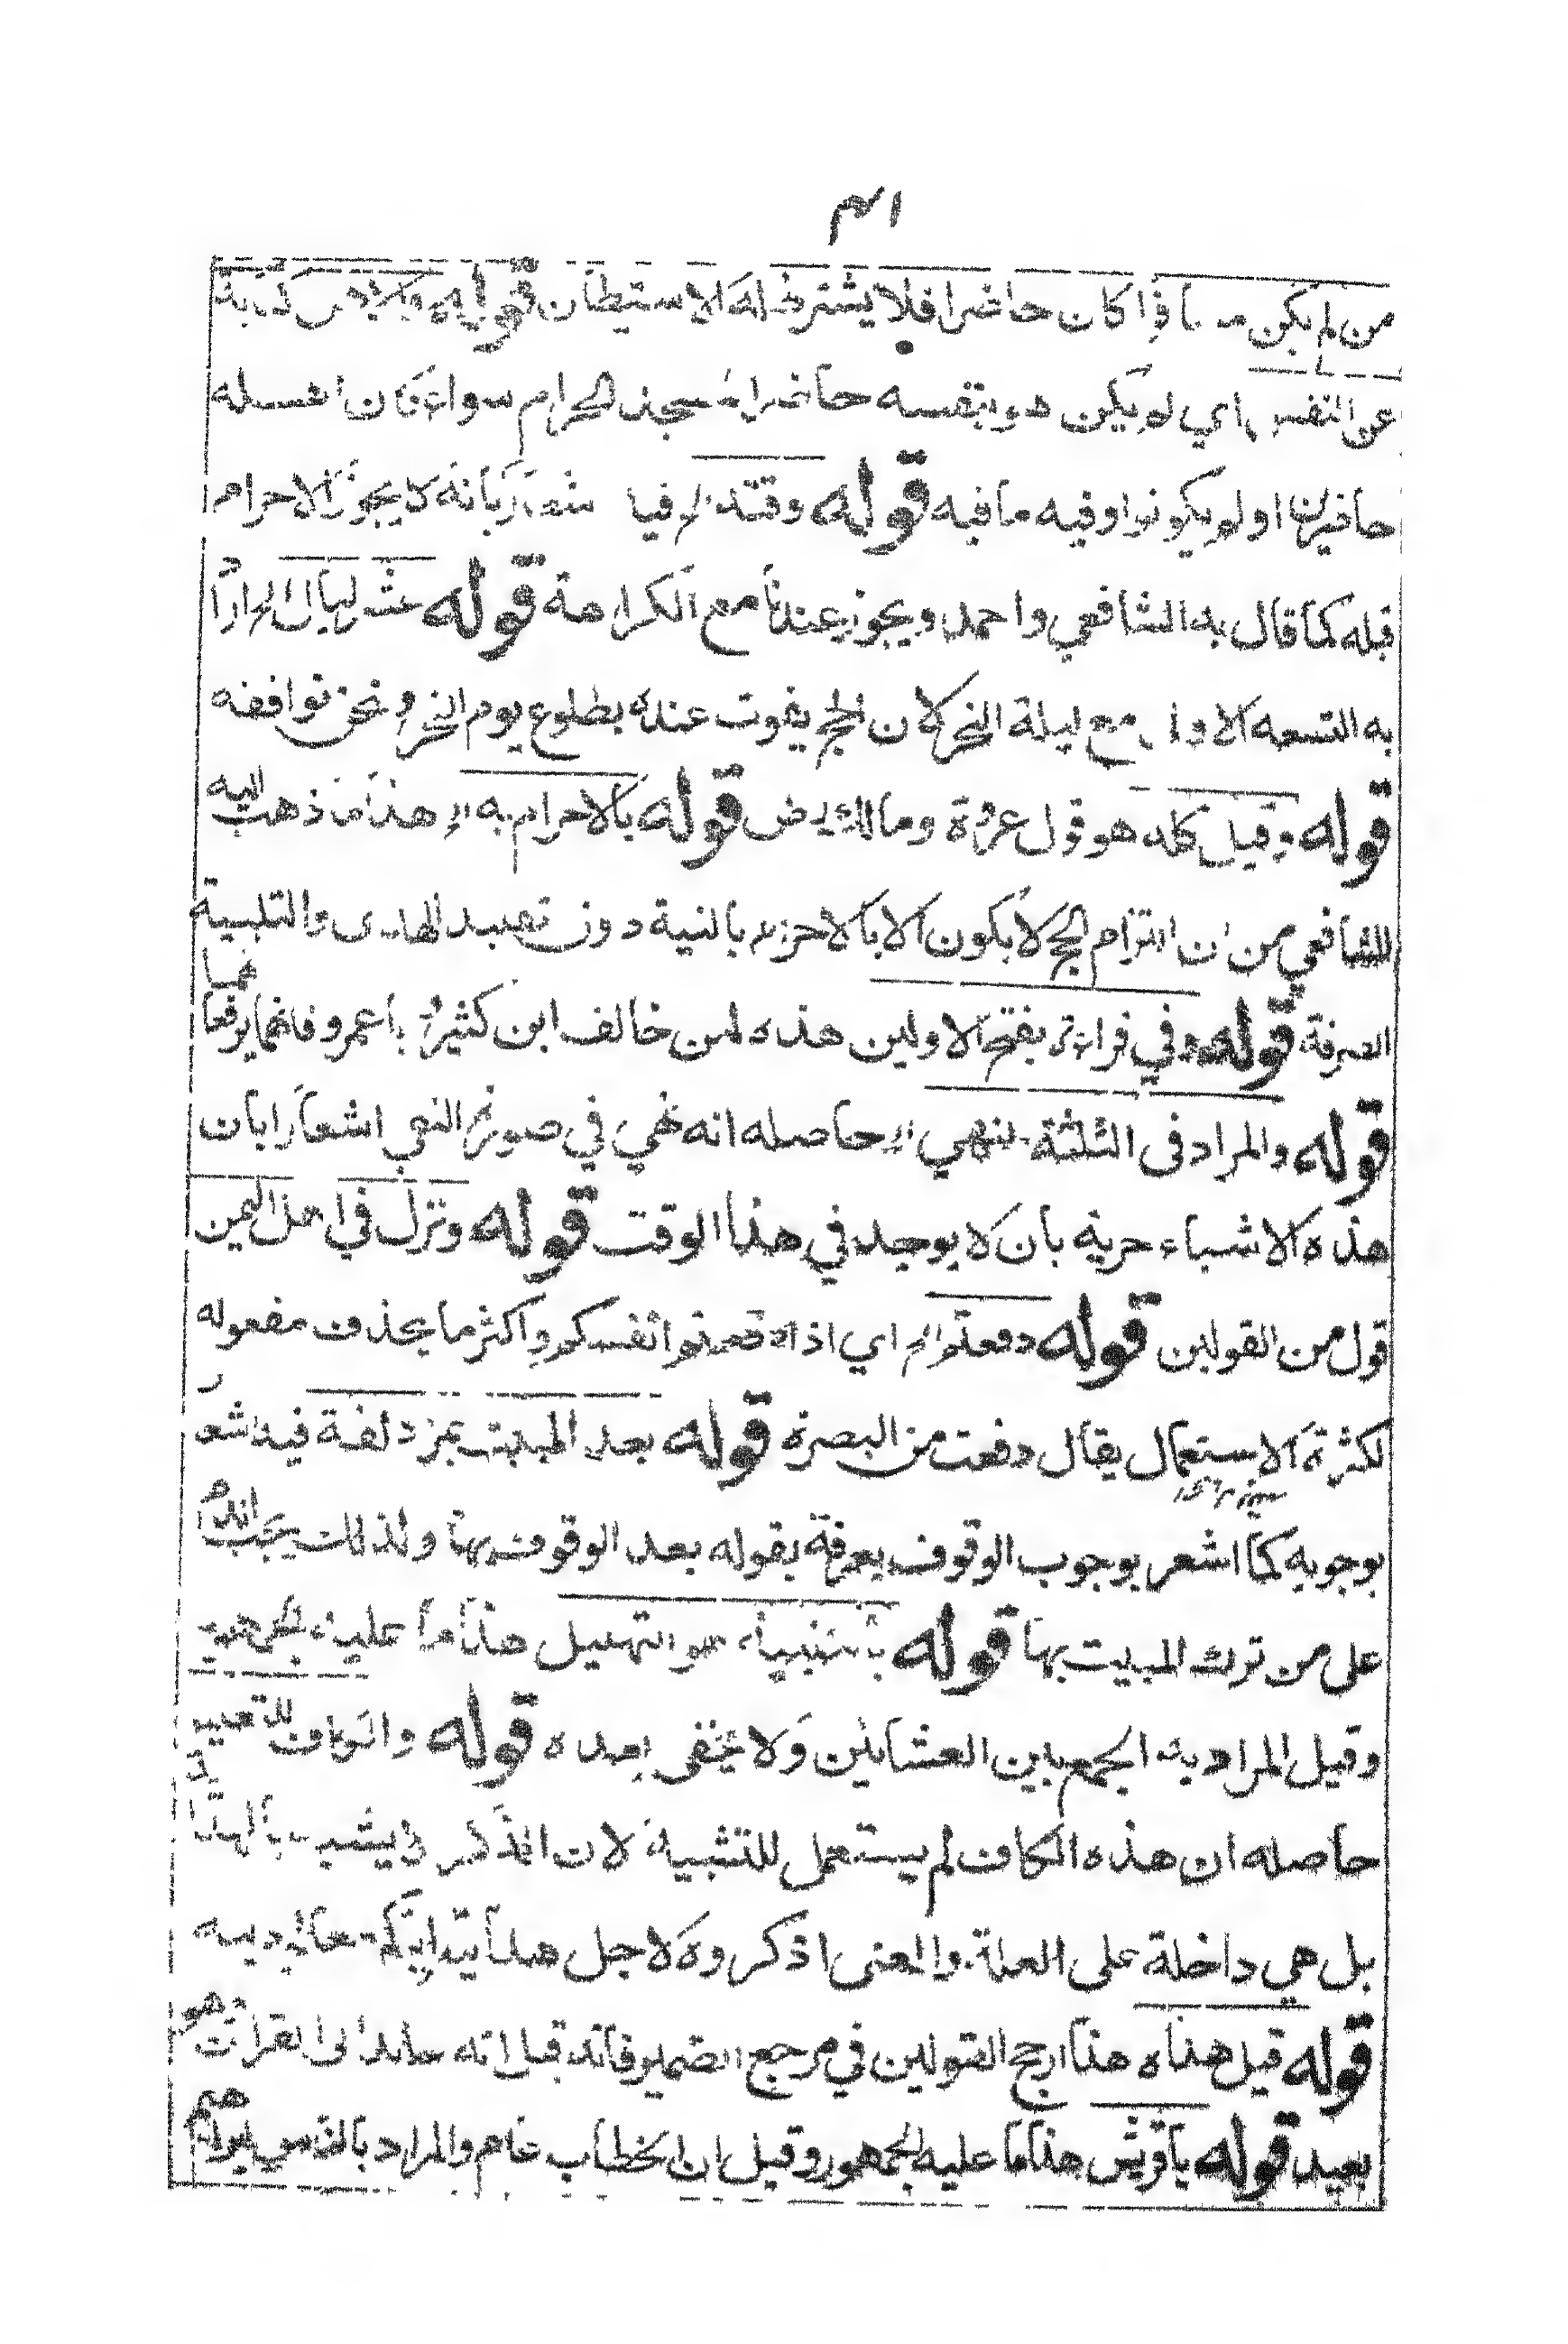 من لم يكن فاذا كان حاضرا فلا يشترط له الاستيطان قوله والاهل كناية
عن النفس اي لم يكن هو بنفسه حاضر المسجد الحرام سواء كان اهله
حاضرين او لم يكونوا وفيه ما فيه قوله وقته الخ فيه اشعار بانه لا يجوز الاحرام
قبله كما قال به الشافعي واحمد ويجوز عندنا مع الكراهة قوله عشر ليال الخ اراد
به التسعة الاول مع ليلة النحر لان الحج يفوت عنده بطلوع يوم النحر ونحن نوافقه
قوله وقيل كله هو قول عروة ومالك قوله بالاحرام به الخ هذا ما ذهب اليه
الشافعي من ان التزام الحج لا يكون الا بالاحرام بالنية دون تقييد الهدى والتلبية
الصرفة قوله وفي قراءة بفتح الاولين هذه لمن خالف ابن كثير وابا عمرو فانهما يرفعانهما
قوله والمراد في الثلثة النهي الخ حاصله انه نهي في صورة النفي اشعارا بان
هذه الاشياء حرية بان لا يوجد في هذا الوقت قوله ونزل في اهل اليمن
قول من القولين قوله دفعتم الخ اي اذا دفعتموا انفسكم واكثر ما يحذف مفعوله
لكثرة الاستعمال يقال دفعت من البصرة قوله بعد المبيت بمزدلفة فيه اشعار
بوجوبه كما اشعر بوجوب الوقوف بعرفة بقوله بعد الوقوف بها ولذلك يجب الدم
على من ترك المبيت بها قوله بالتلبية والتهليل هذا ما عليه الجمهور
وقيل المراد به الجمع بين العشائين ولا يخفى بعده قوله والكاف للتعليل
حاصله ان هذه الكاف لم يستعمل للتشبيه لان الذكر لا يشبه بالهداية
بل هي داخلة على العلة والمعنى اذكروه لاجل هدايته اياكم معالم دينه
قوله قيل هداه هذا ارجح القولين في مرجع الضمير فانه قيل انه عائد الى القران وهو
بعيد قوله يا قريش هذا ما عليه الجمهور وقيل ان الخطاب عام والمراد بالناس ابراهيم